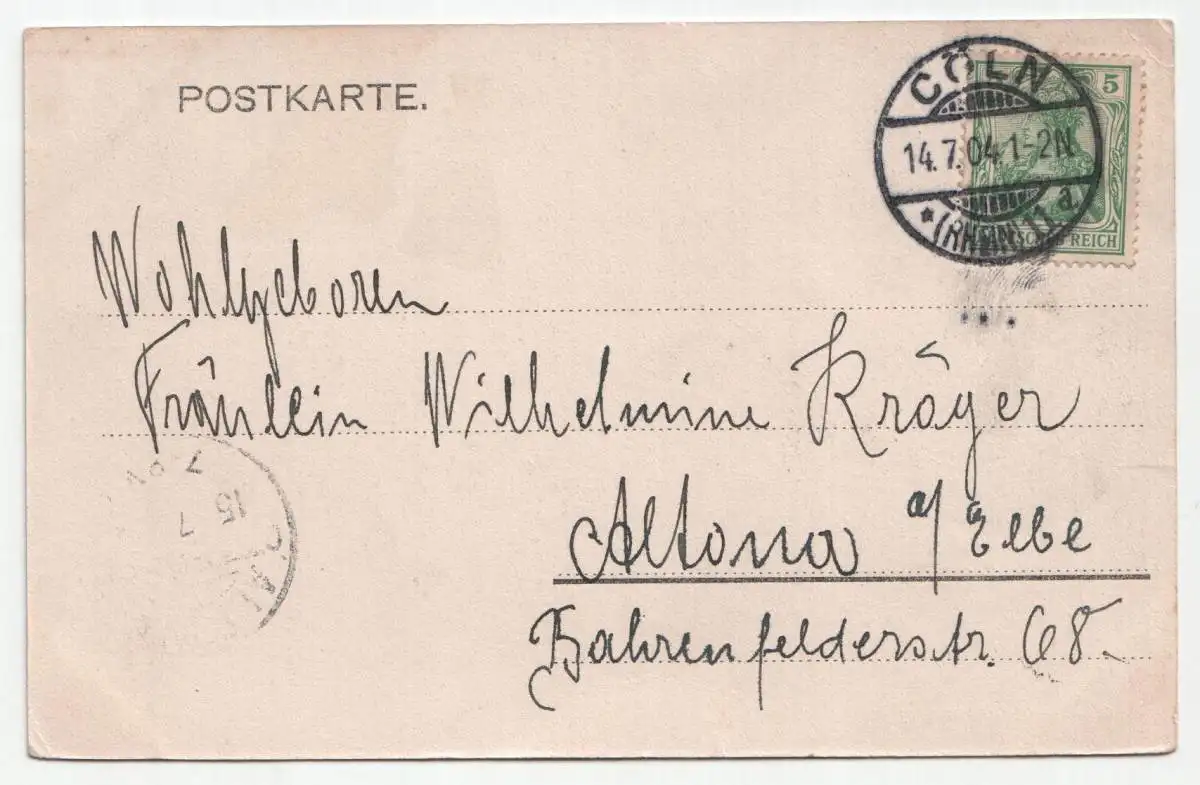 POSTKARTE.
CÖLN
5
14.7.04.1-2N.
*(RHEIN) 11 d.
REICH
Wohlgeboren
Fräulein Wilhelmine Kröger
Altona a/ Elbe
Bahrenfelderstr. 68.
15
7